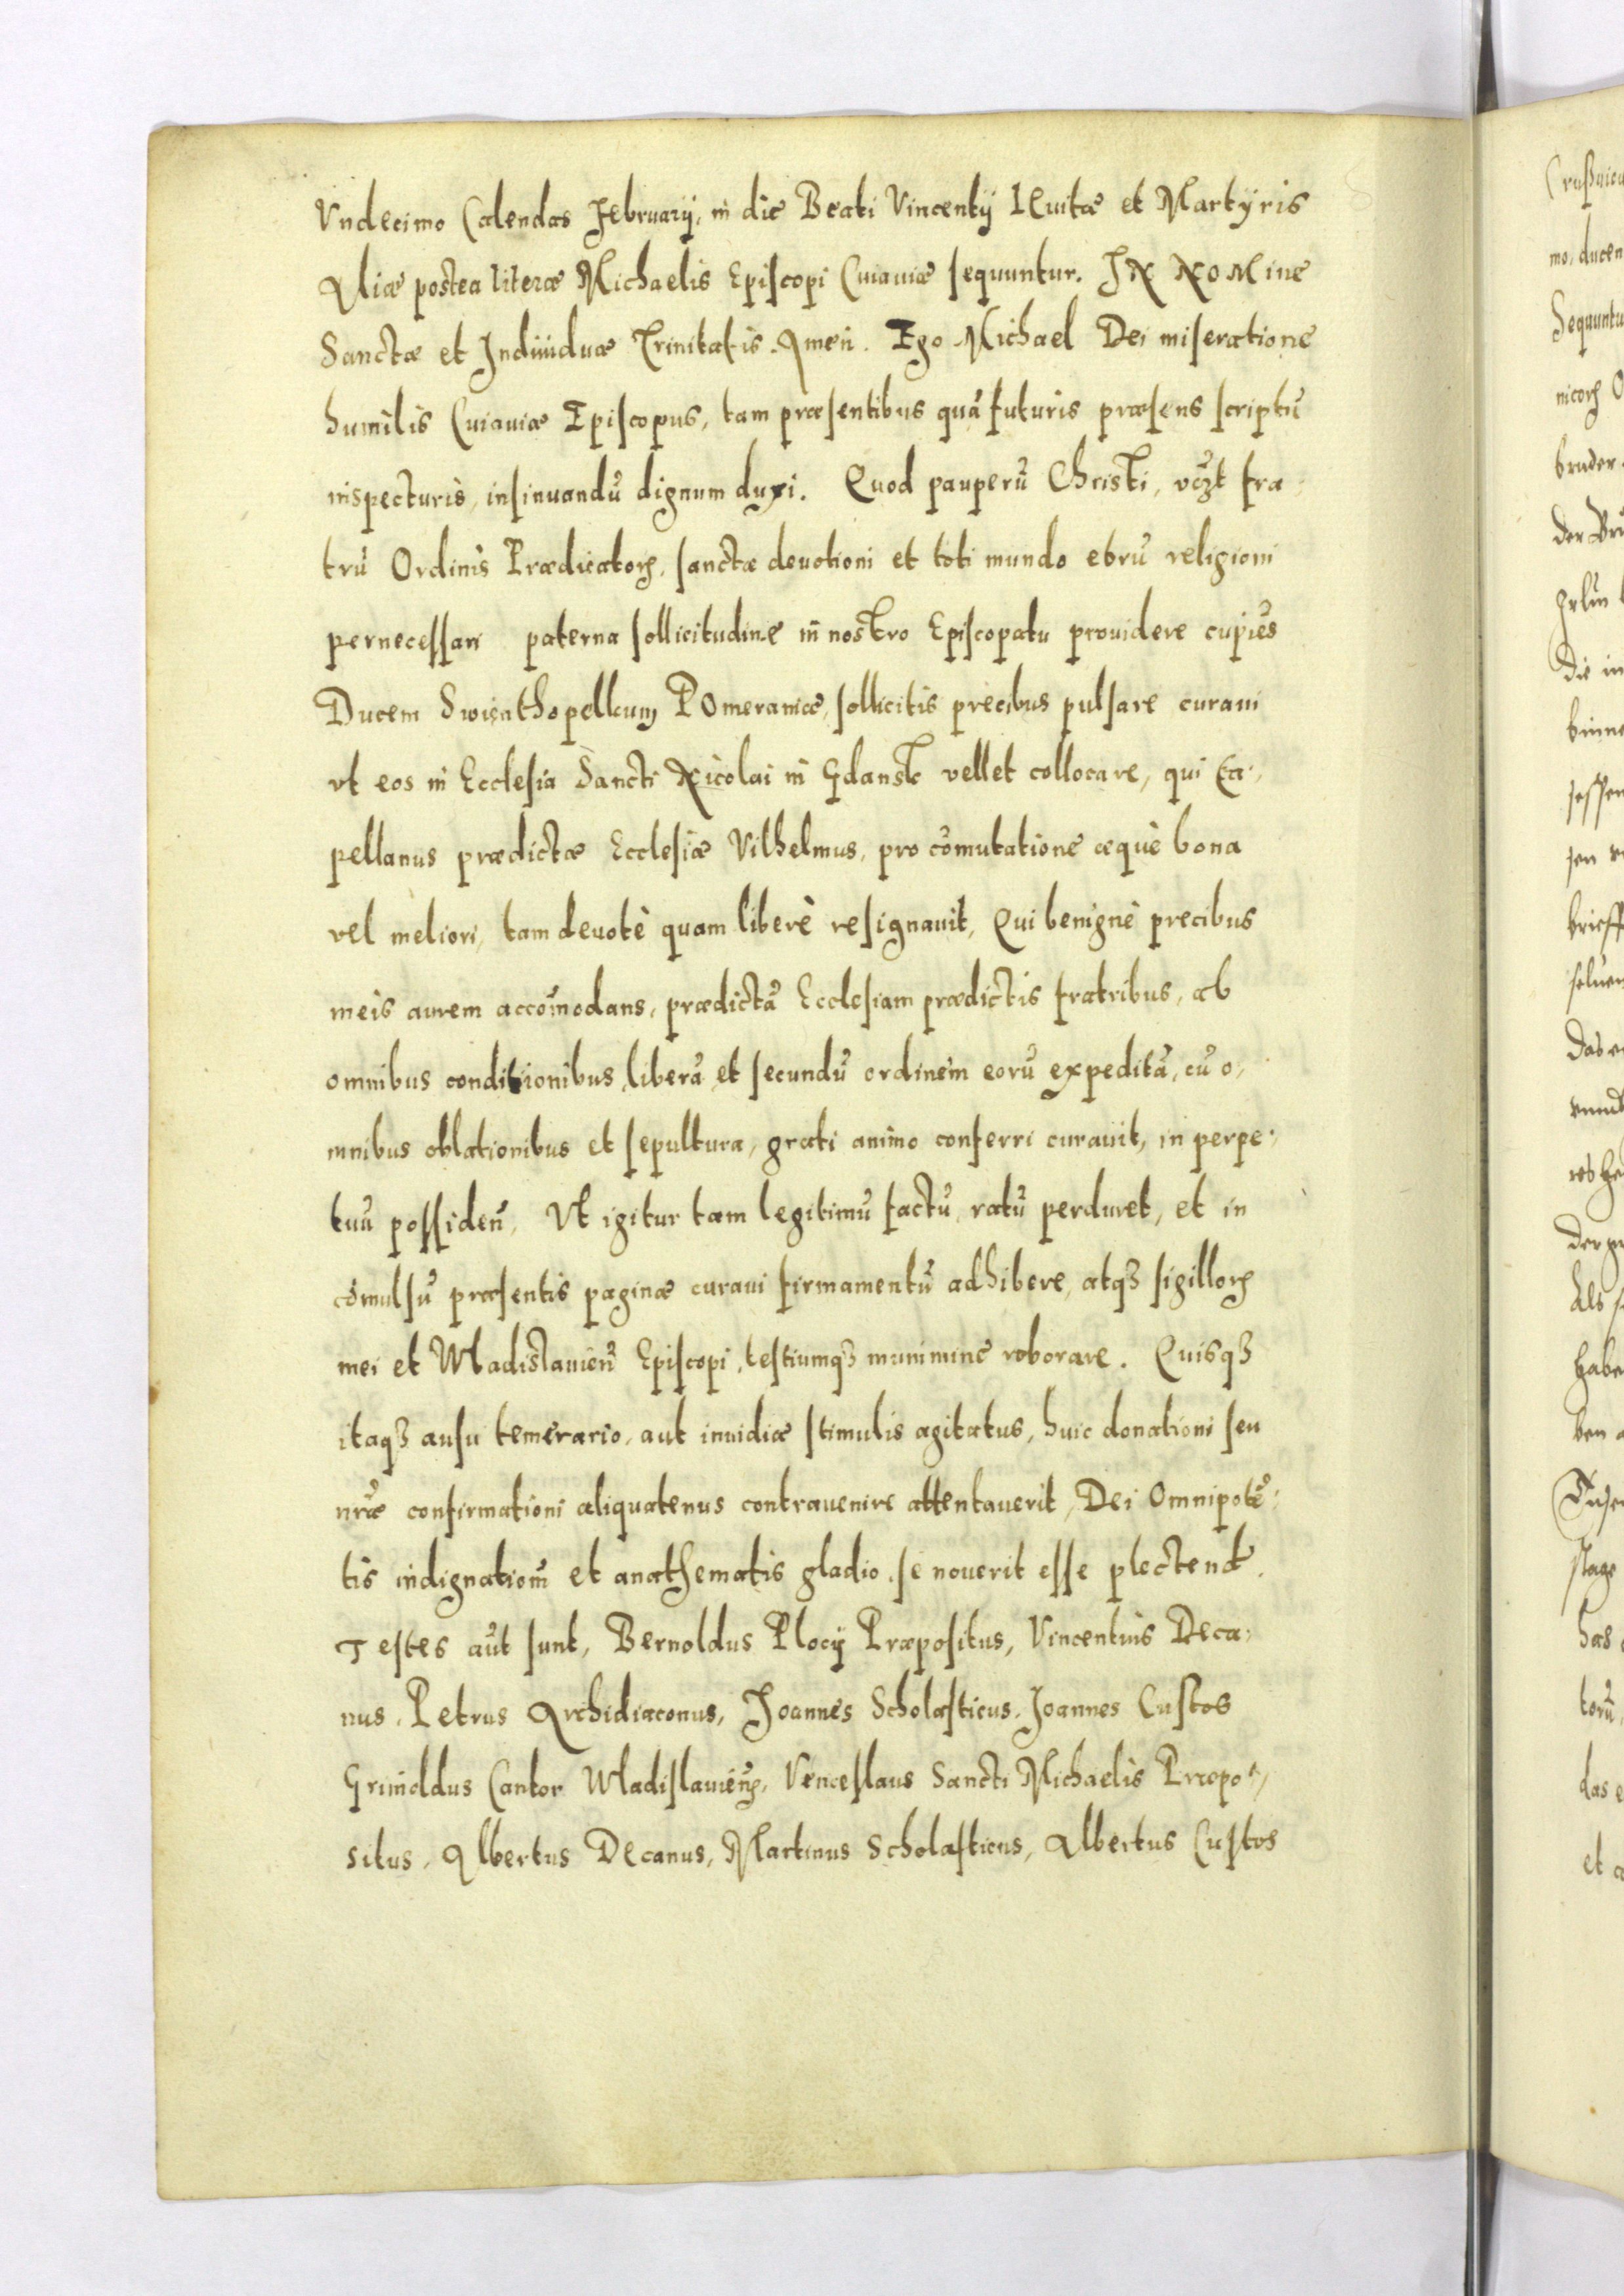 Vndecimo Calendas February, in die Beati Vincentij Leuitæ et Martyris
Aliæ postea literæ Michaelis Episcopi Cuiauiæ sequuntur. IN NOMine
Sanctæ et Indiuiduæ Trinitatis. Amen. Ego Michael Dei miseratione
humilis Cuiauiæ Episcopus, tam præsentibus quã futuris præsens scriptũ
inspecturis, insinuandũ dignum duxi. Quod pauperũ Christi, vczt fra-
trũ Ordinis Prædicatorꝝ, sanctæ deuotioni et toti mundo ebrũ religioni
pernecessari paterna sollicitudine in nostro Episcopatu prouidere cupiẽs
Ducem Swienthopelkum POmeraniæ, sollicitis precibus pulsare curaui
vt eos in Ecclesia Sancti Nicolai in Gdansk vellet collocare, qui Ca-
pellanus prædictæ Ecclesiæ Vilhelmus, pro cõmutatione æquè bona
vel meliori, tam deuotè quam liberè resignauit, Qui benignè precibus
meis aurem accõmodans, prædictã Ecclesiam prædictis fratribus, ab
omnibus conditionibus, liberã et secundũ ordinem eorũ expeditã, cũ o-
mnibus oblationibus et sepultura, grati animo conferri curauit, in perpe-
tuũ possideñ, Vt igitur tam legitimũ factũ, ratũ perduret, et in
cõuulsũ præsentis paginæ curaui firmamentũ adhibere, atqꝫ sigillorꝝ
mei et Wladislauieñ Episcopi, testiumqꝫ munimine roborare. Quisqꝫ
itaqꝫ ausu temerario, aut inuidiæ stimulis agitatus, huic donationi seu
nr̃æ confirmationi aliquatenus contrauenire attentauerit, Dei Omnipotẽ-
tis indignationẽ et anathematis gladio se nouerit esse plectend.
Testes aũt sunt, Bernoldus Plocij Præpositus, Vincentius Deca-
nus, Petrus Archidiaconus, Joannes Scholasticus, Joannes Custos
Grimoldus Cantor Wladislauieñ, Venceslaus Sancti Michaelis Præpo-
situs, Albertus Decanus, Martinus Scholasticus, Albertus Custos